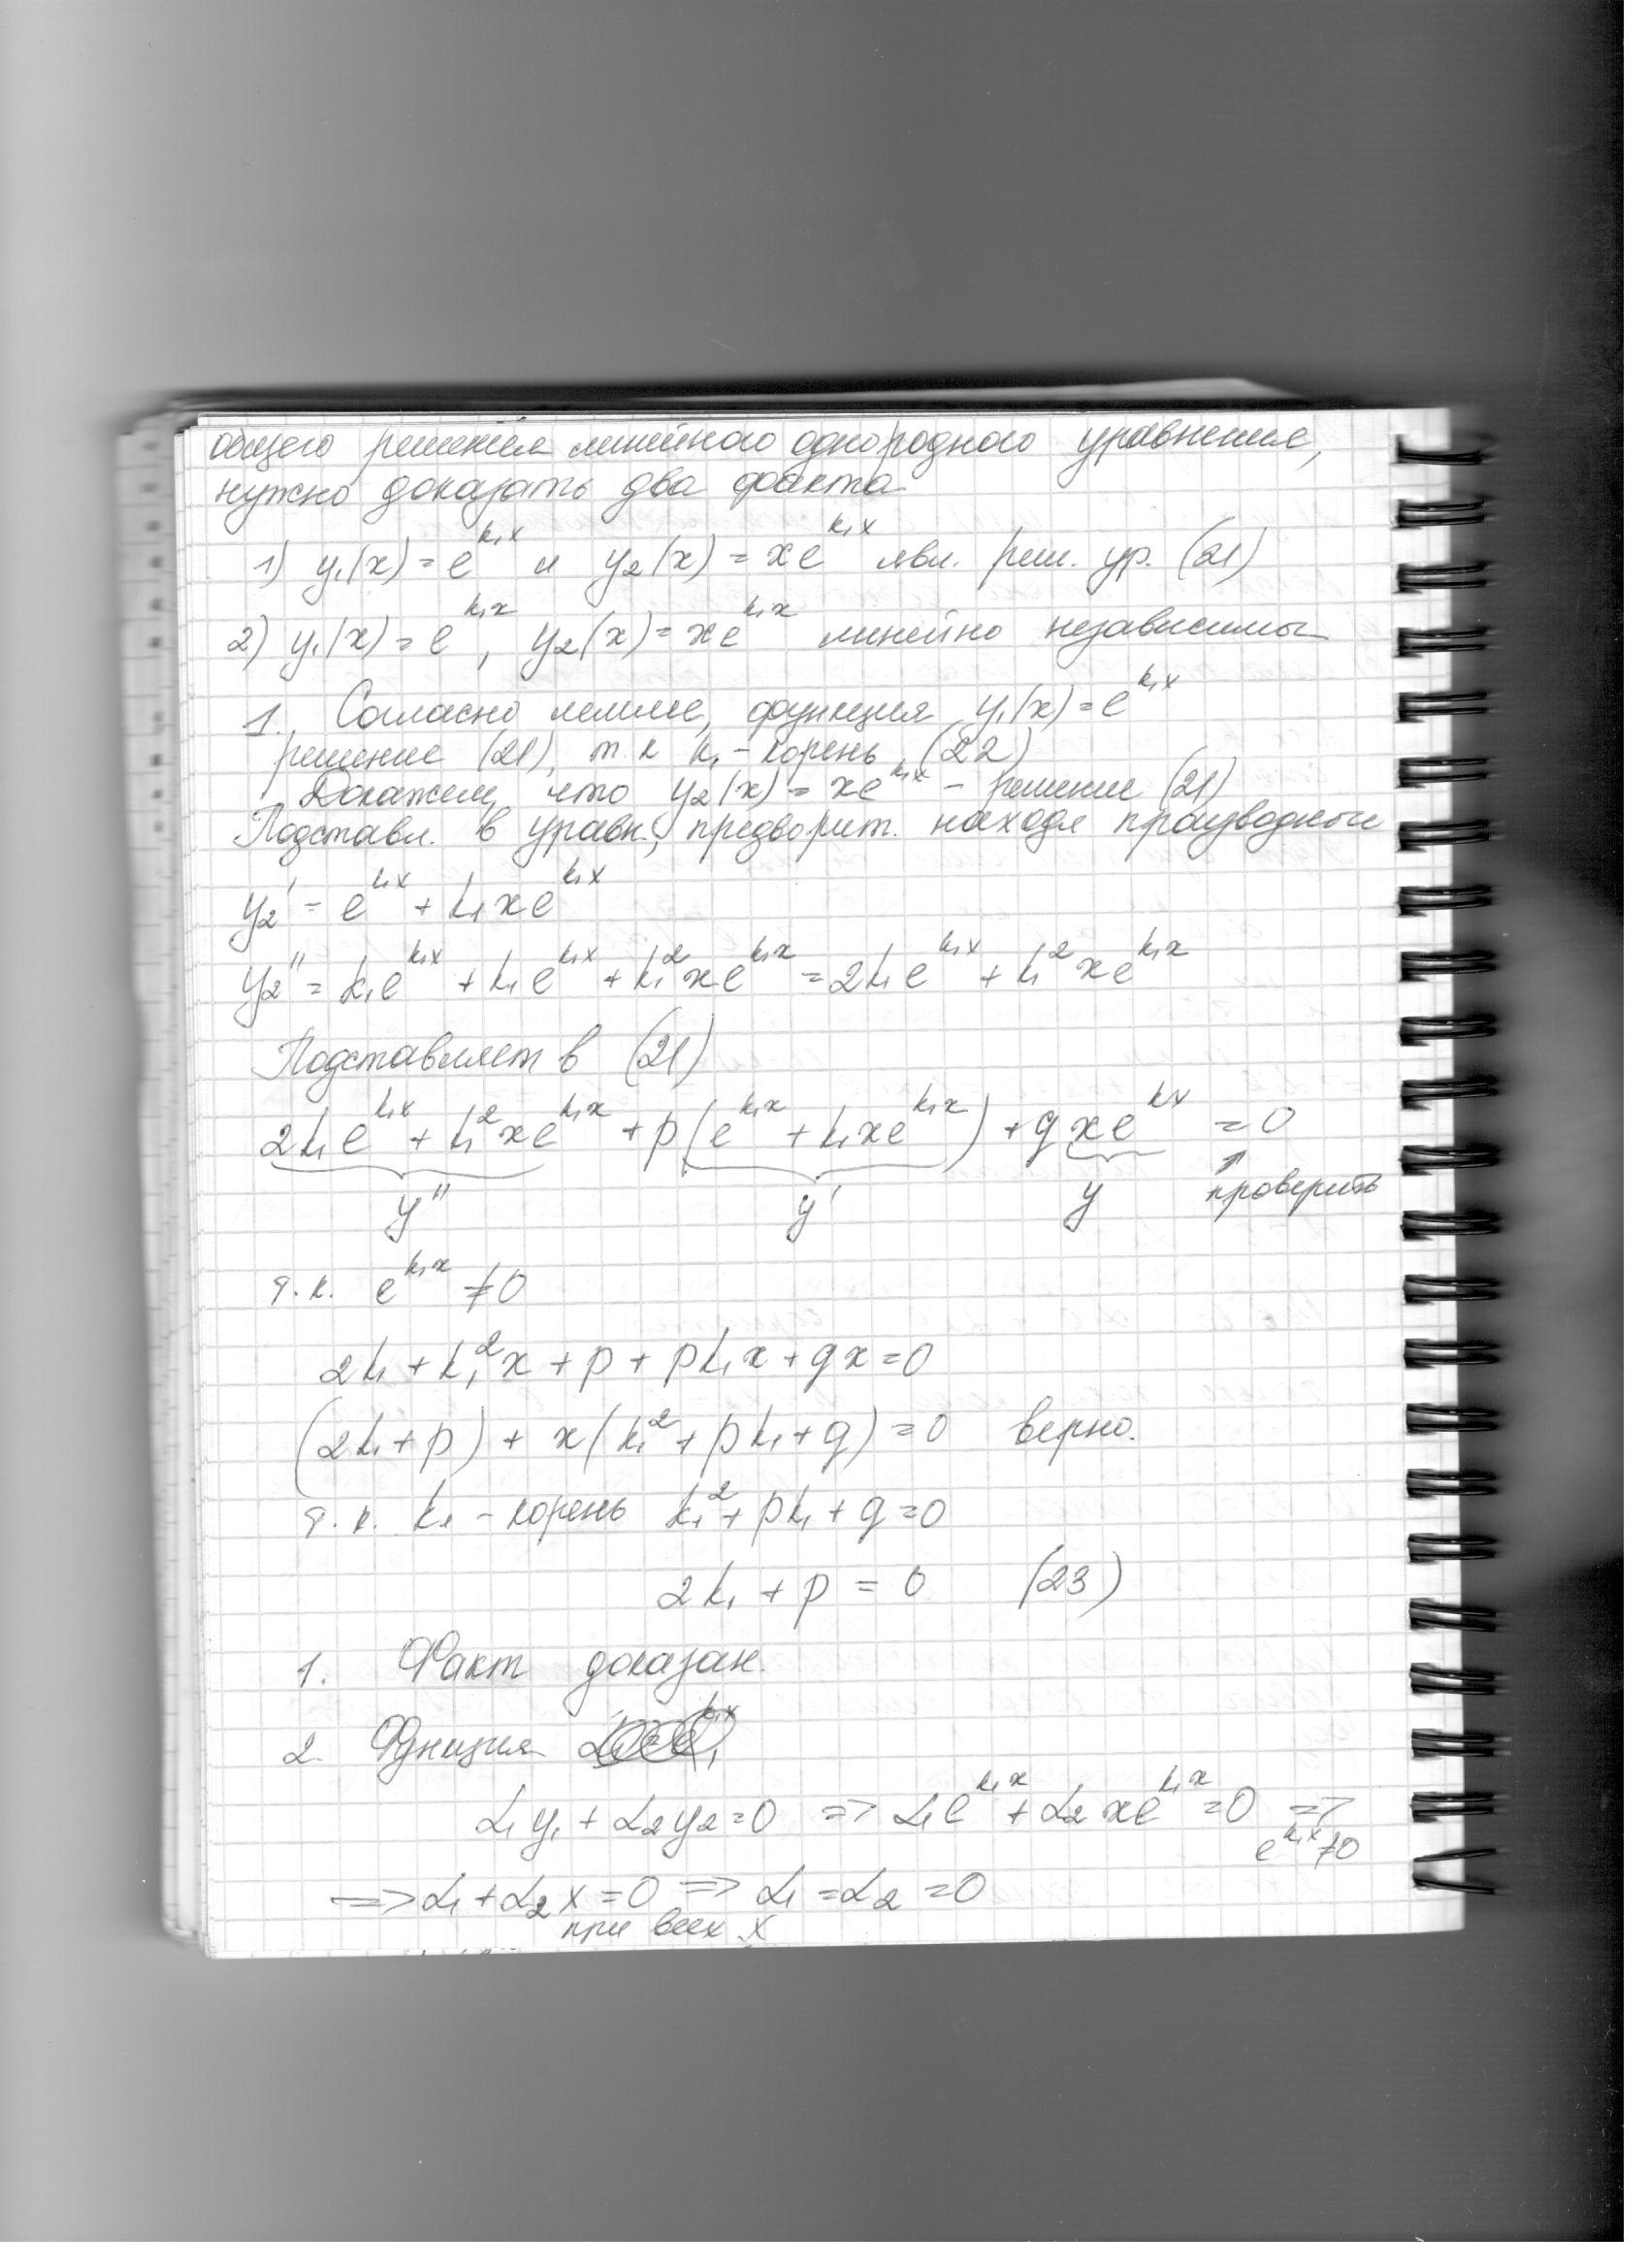 общего решения линейного однородного уравнения,
нужно доказать два факта
1) y₁(x) = e^{k₁x} и y₂(x) = xe^{k₁x} явл. реш. ур. (21)
2) y₁(x) = e^{k₁x}, y₂(x) = xe^{k₁x} линейно независимы
1. Согласно лемме, функция y₁(x) = e^{k₁x}
решение (21), т.к k₁ - корень (22)
Докажем, что y₂(x) = xe^{k₁x} - решение (21)
Подставл. в уравн., предворит. находя производные
y₂' = e^{k₁x} + k₁xe^{k₁x}
y₂'' = k₁e^{k₁x} + k₁e^{k₁x} + k₁²xe^{k₁x} = 2k₁e^{k₁x} + k₁²xe^{k₁x}
Подставляем в (21)
2k₁e^{k₁x} + k₁²xe^{k₁x} + p(e^{k₁x} + k₁xe^{k₁x}) + qxe^{kx} = 0
y'' y' y ↑ проверить
т.к. e^{k₁x} ≠ 0
2k₁ + k₁²x + p + pk₁x + qx = 0
(2k₁ + p) + x(k₁² + pk₁ + q) = 0 верно.
т.к. k₁ - корень k₁² + pk₁ + q = 0
2k₁ + p = 0 (23)
1. Факт доказан.
2. Функция
α₁y₁ + α₂y₂ = 0 => α₁e^{k₁x} + α₂xe^{k₁x} = 0 =>
e^{k₁x} ≠ 0
=> α₁ + α₂x = 0 => α₁ = α₂ = 0
при всех x